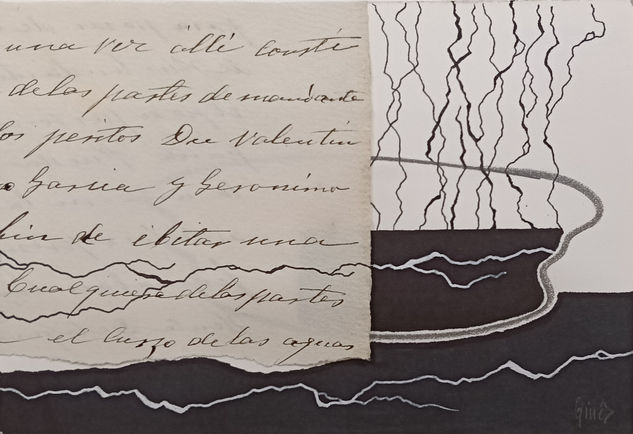 una vez allí consti
de las partes demandante
los peritos Dn Valentin
Garcia y Geronimo
fin de ebitar una
Cualquiera de las partes
el curso de las aguas
Ginés